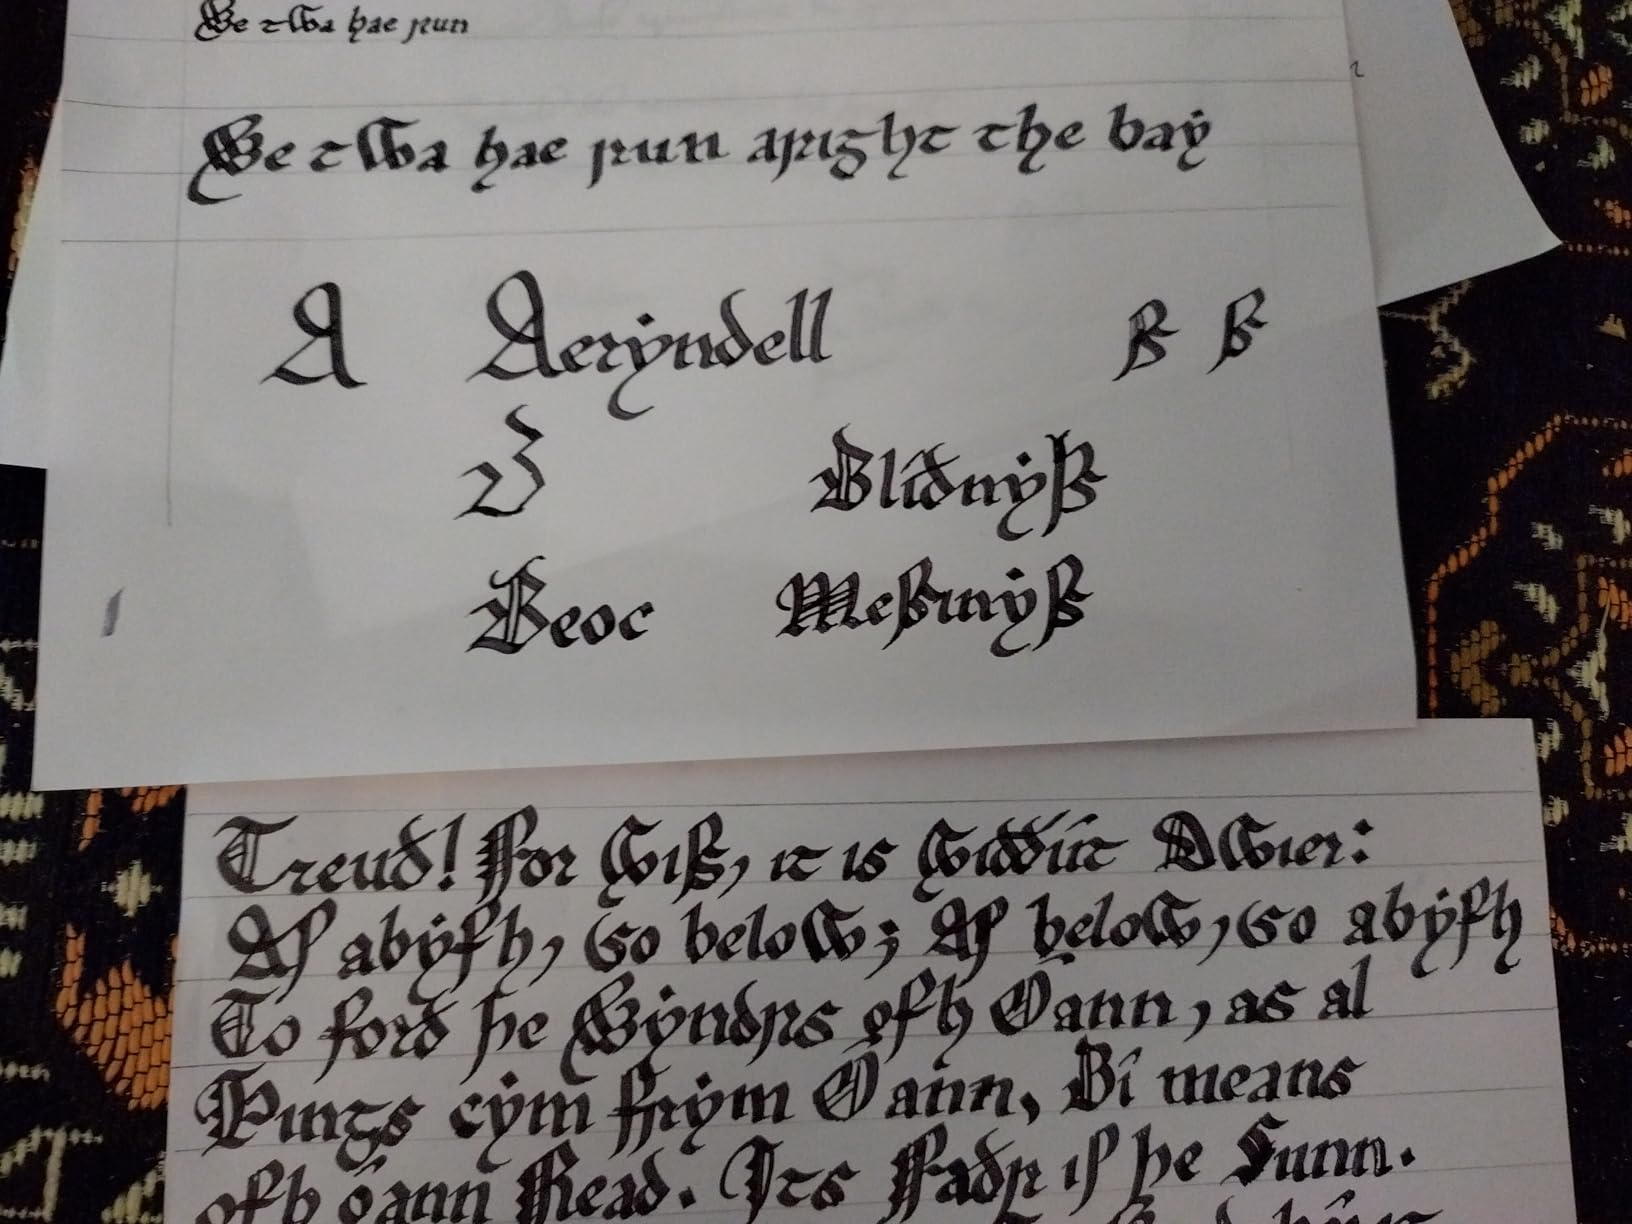 We twa hae run
We twa hae run aright the bay
A Aerẏndell ß ß
Blîðnẏß
Beoc Meßinẏß
Treuð! For Wiß, it is Widðút Dwier:
Aſ abẏfh, so below; Aſ below, so abẏfh
To forð þe Wẏndrs ofh Oann, as al
Þings cẏm ffrẏm Oann, Bî means
ofh óann Read. Its Faðr iſ þe Sunn.